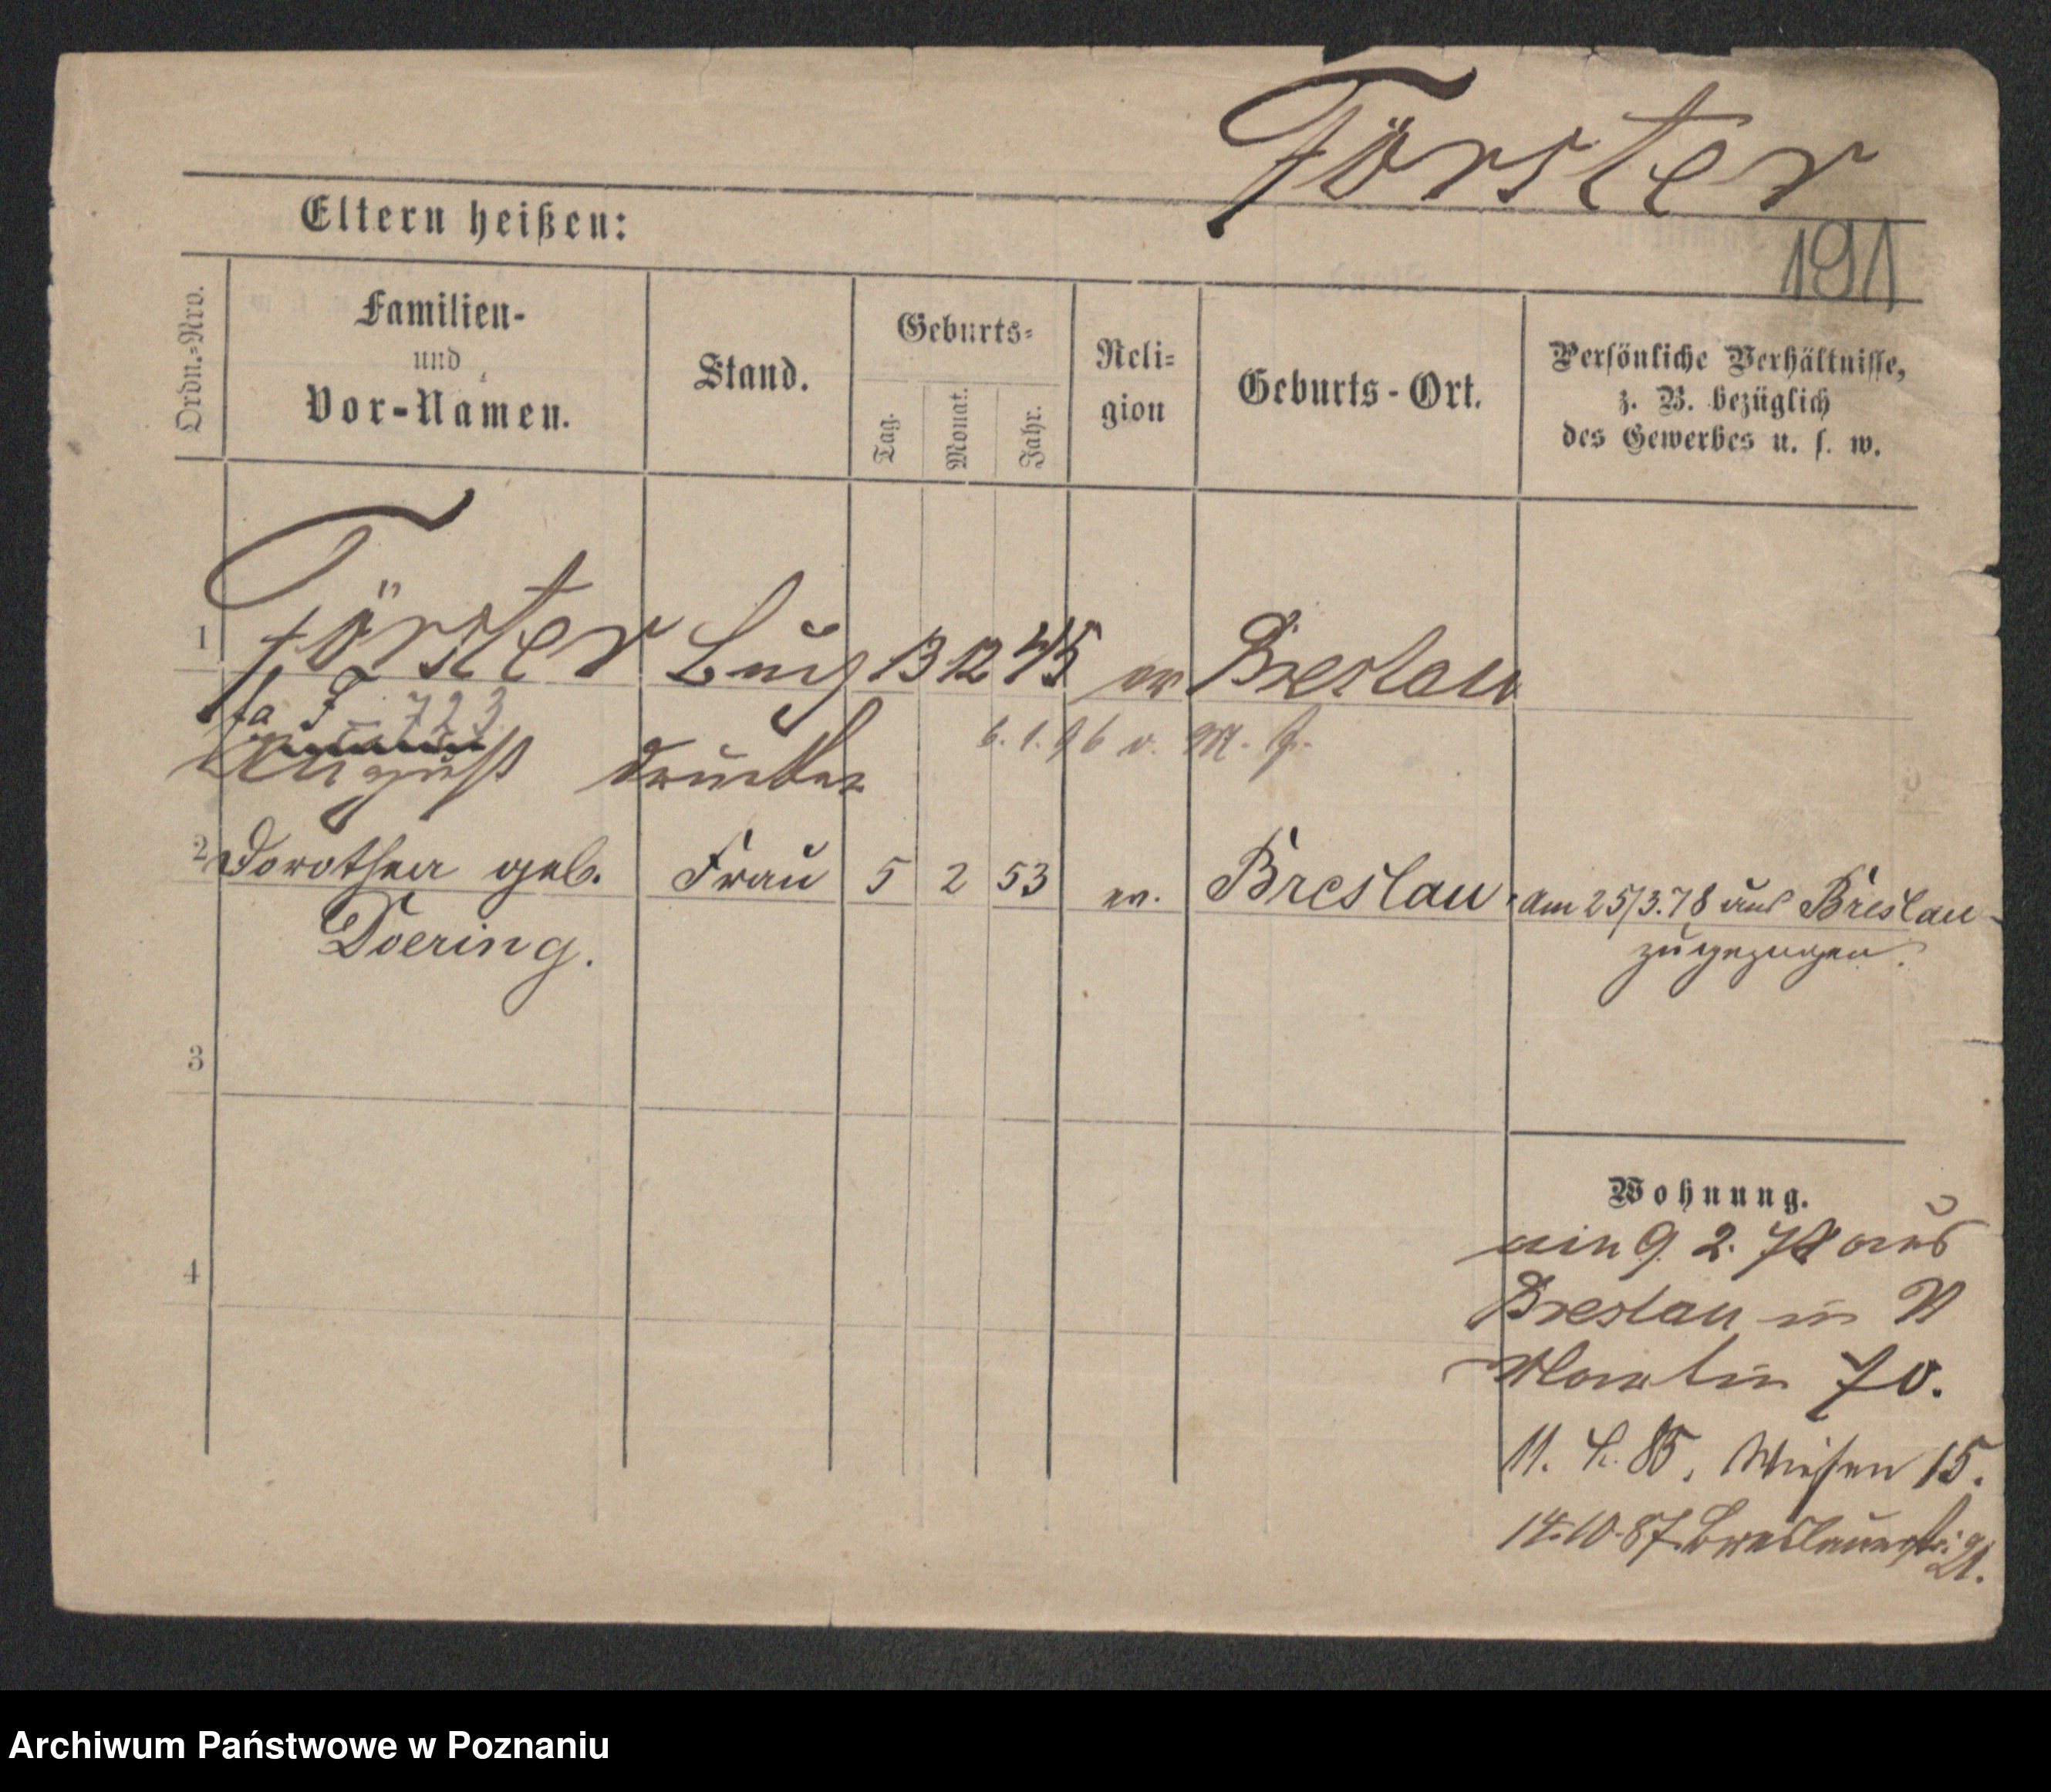 Förster
191
Eltern heißen:
Ordn.-Nro.
Familien-
und
Vor-Namen.
Stand.
Geburts-
Tag.
Monat.
Jahr.
Reli-
gion
Geburts-Ort.
Persönliche Verhältnisse,
z. B. bezüglich
des Gewerbes u. s. w.
1 Förster Buch 13 12 45 ev Breslau
723
6. 1. 96 v.
August drucker
2 Dorothea geb. Frau 5 2 53 ev. Breslau am 25/3.78 aus Breslau
Doering. zugezogen.
3
4
Wohnung.
9. 2. 78 aus
Breslau in
Martin 70.
11. 4. 85. Wiesen 15.
14.10.87. Breslauerstr. 21.
Archiwum Państwowe w Poznaniu